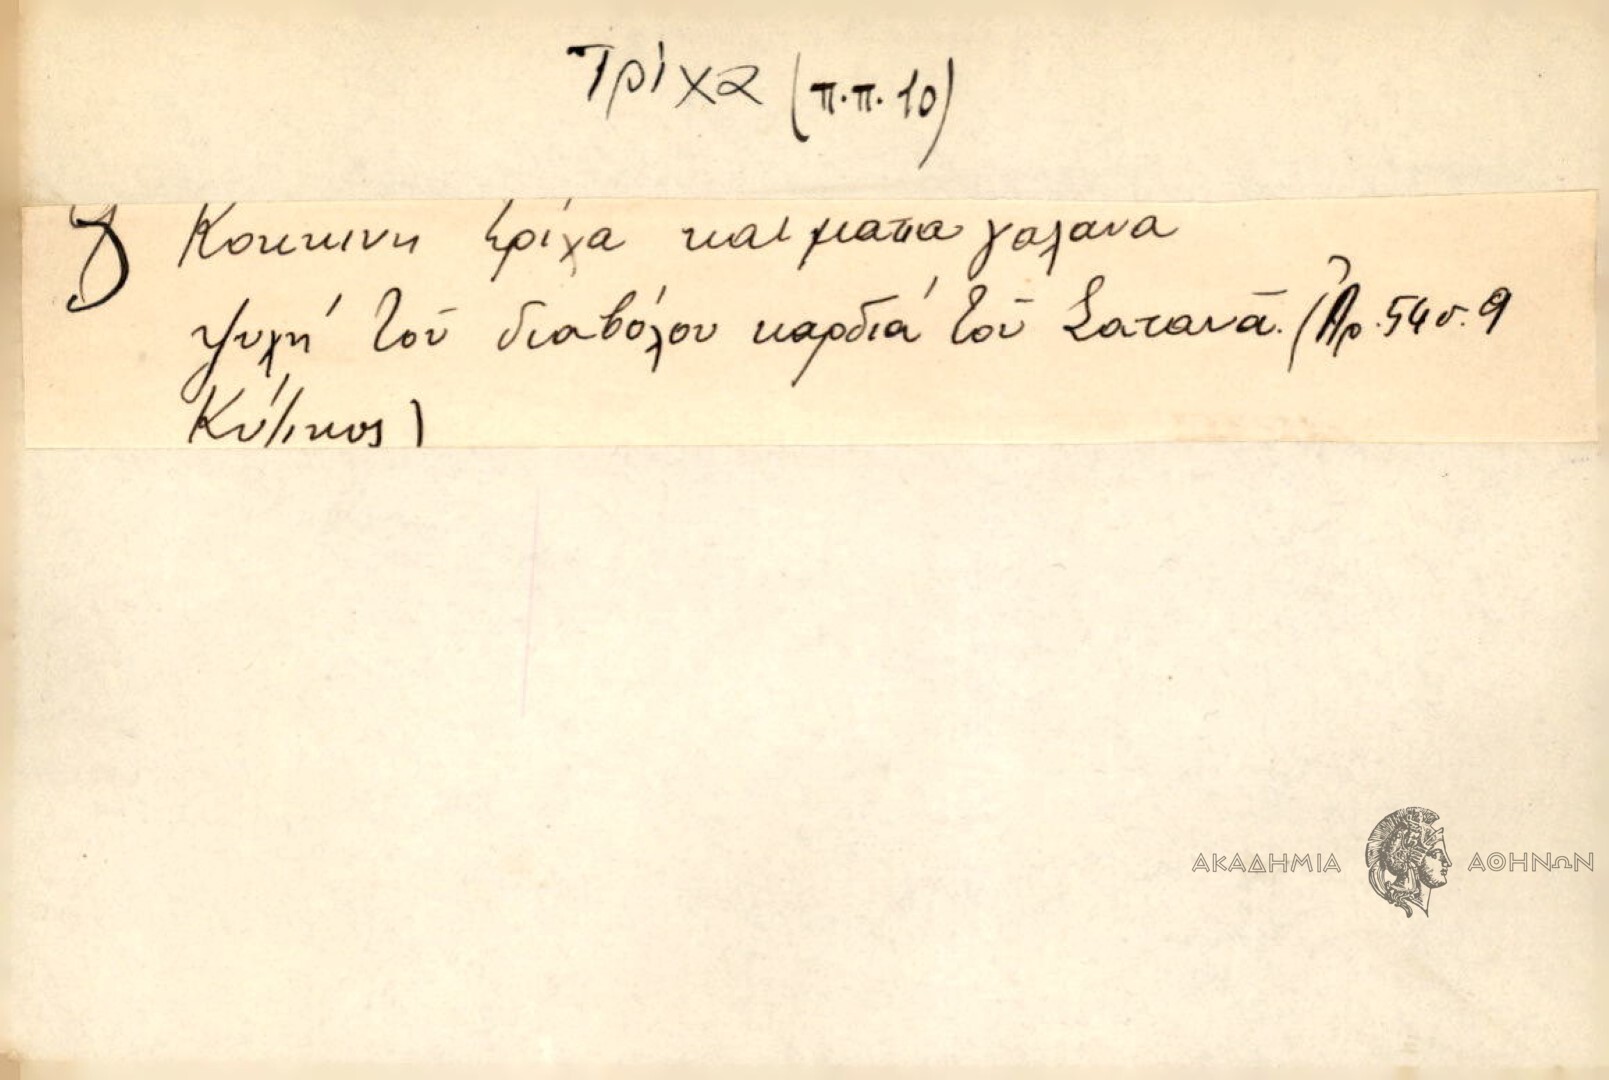 Τρίχα (π.π. 10)
Κοκκινη τρίχα και ματια γαλανα
ψυχή τοῦ διαβόλου καρδιά τοῦ Σατανᾶ. (Ἀρ. 54 σ. 9
Κύζικος)
ΑΚΑΔΗΜΙΑ ΑΘΗΝΩΝ